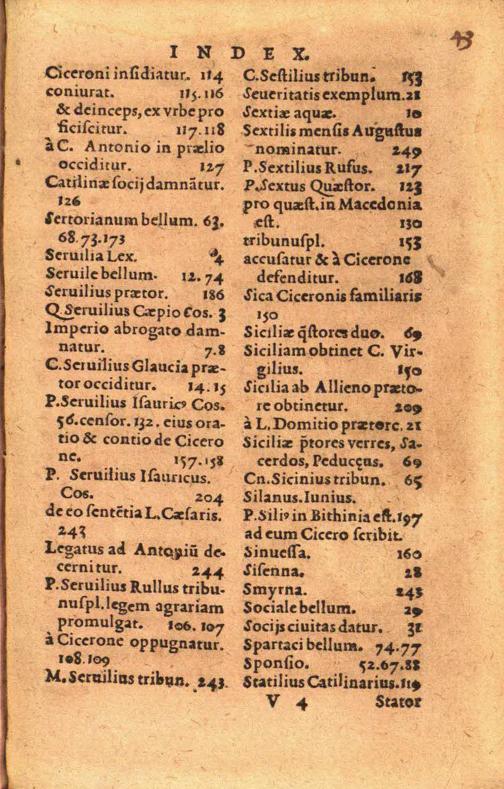 43
INDEX.
Ciceroni insidiatur. 114
coniurat. 115.116
& deinceps, ex vrbe pro
ficiscitur. 117.118
à C. Antonio in prælio
occiditur. 127
Catilinæ socij damnātur.
126
Sertorianum bellum. 63.
68.73.173
Seruilia Lex. 4
Seruile bellum. 12.74
Seruilius prætor. 186
Q Seruilius Cæpio Cos. 3
Imperio abrogato dam-
natur. 7.8
C. Seruilius Glaucia præ-
tor occiditur. 14.15
P. Seruilius Isauricꝰ Cos.
56. censor. 132. eius ora-
tio & contio de Cicero
ne. 157.158
P. Seruilius Isauricus.
Cos. 204
de eo sentētia L. Cæsaris.
243
Legatus ad Antoniū de-
cernitur. 244
P. Seruilius Rullus tribu-
nuspl. legem agrariam
promulgat. 106.107
à Cicerone oppugnatur.
108.109
M. Seruilius tribun. 243.
C. Sestilius tribun. 153
Seueritatis exemplum. 21
Sextiæ aquæ. 10
Sextilis mensis Augustus
nominatur. 249
P. Sextilius Rufus. 217
P. Sextus Quæstor. 123
pro quæst. in Macedonia
est. 130
tribunuspl. 153
accusatur & à Cicerone
defenditur. 168
Sica Ciceronis familiaris
150
Siciliæ q̄stores duo. 69
Siciliam obtinet C. Vir-
gilius. 150
Sicilia ab Allieno præto-
re obtinetur. 209
à L. Domitio prætore. 21
Siciliæ p̄tores verres, Sa-
cerdos, Peducęus. 69
Cn. Sicinius tribun. 65
Silanus. Iunius.
P. Siliꝰ in Bithinia est. 197
ad eum Cicero scribit.
Sinuessa. 160
Sisenna. 28
Smyrna. 243
Sociale bellum. 29
Socijs ciuitas datur. 31
Spartaci bellum. 74.77
Sponsio. 52.67.88
Statilius Catilinarius. 119
V 4 Stator